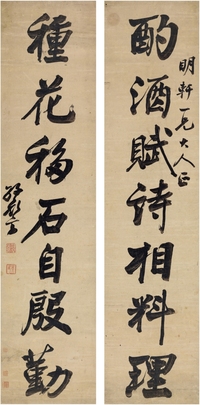 酌酒賦詩相料理
明軒一兄大人正
種花移石自殷勤